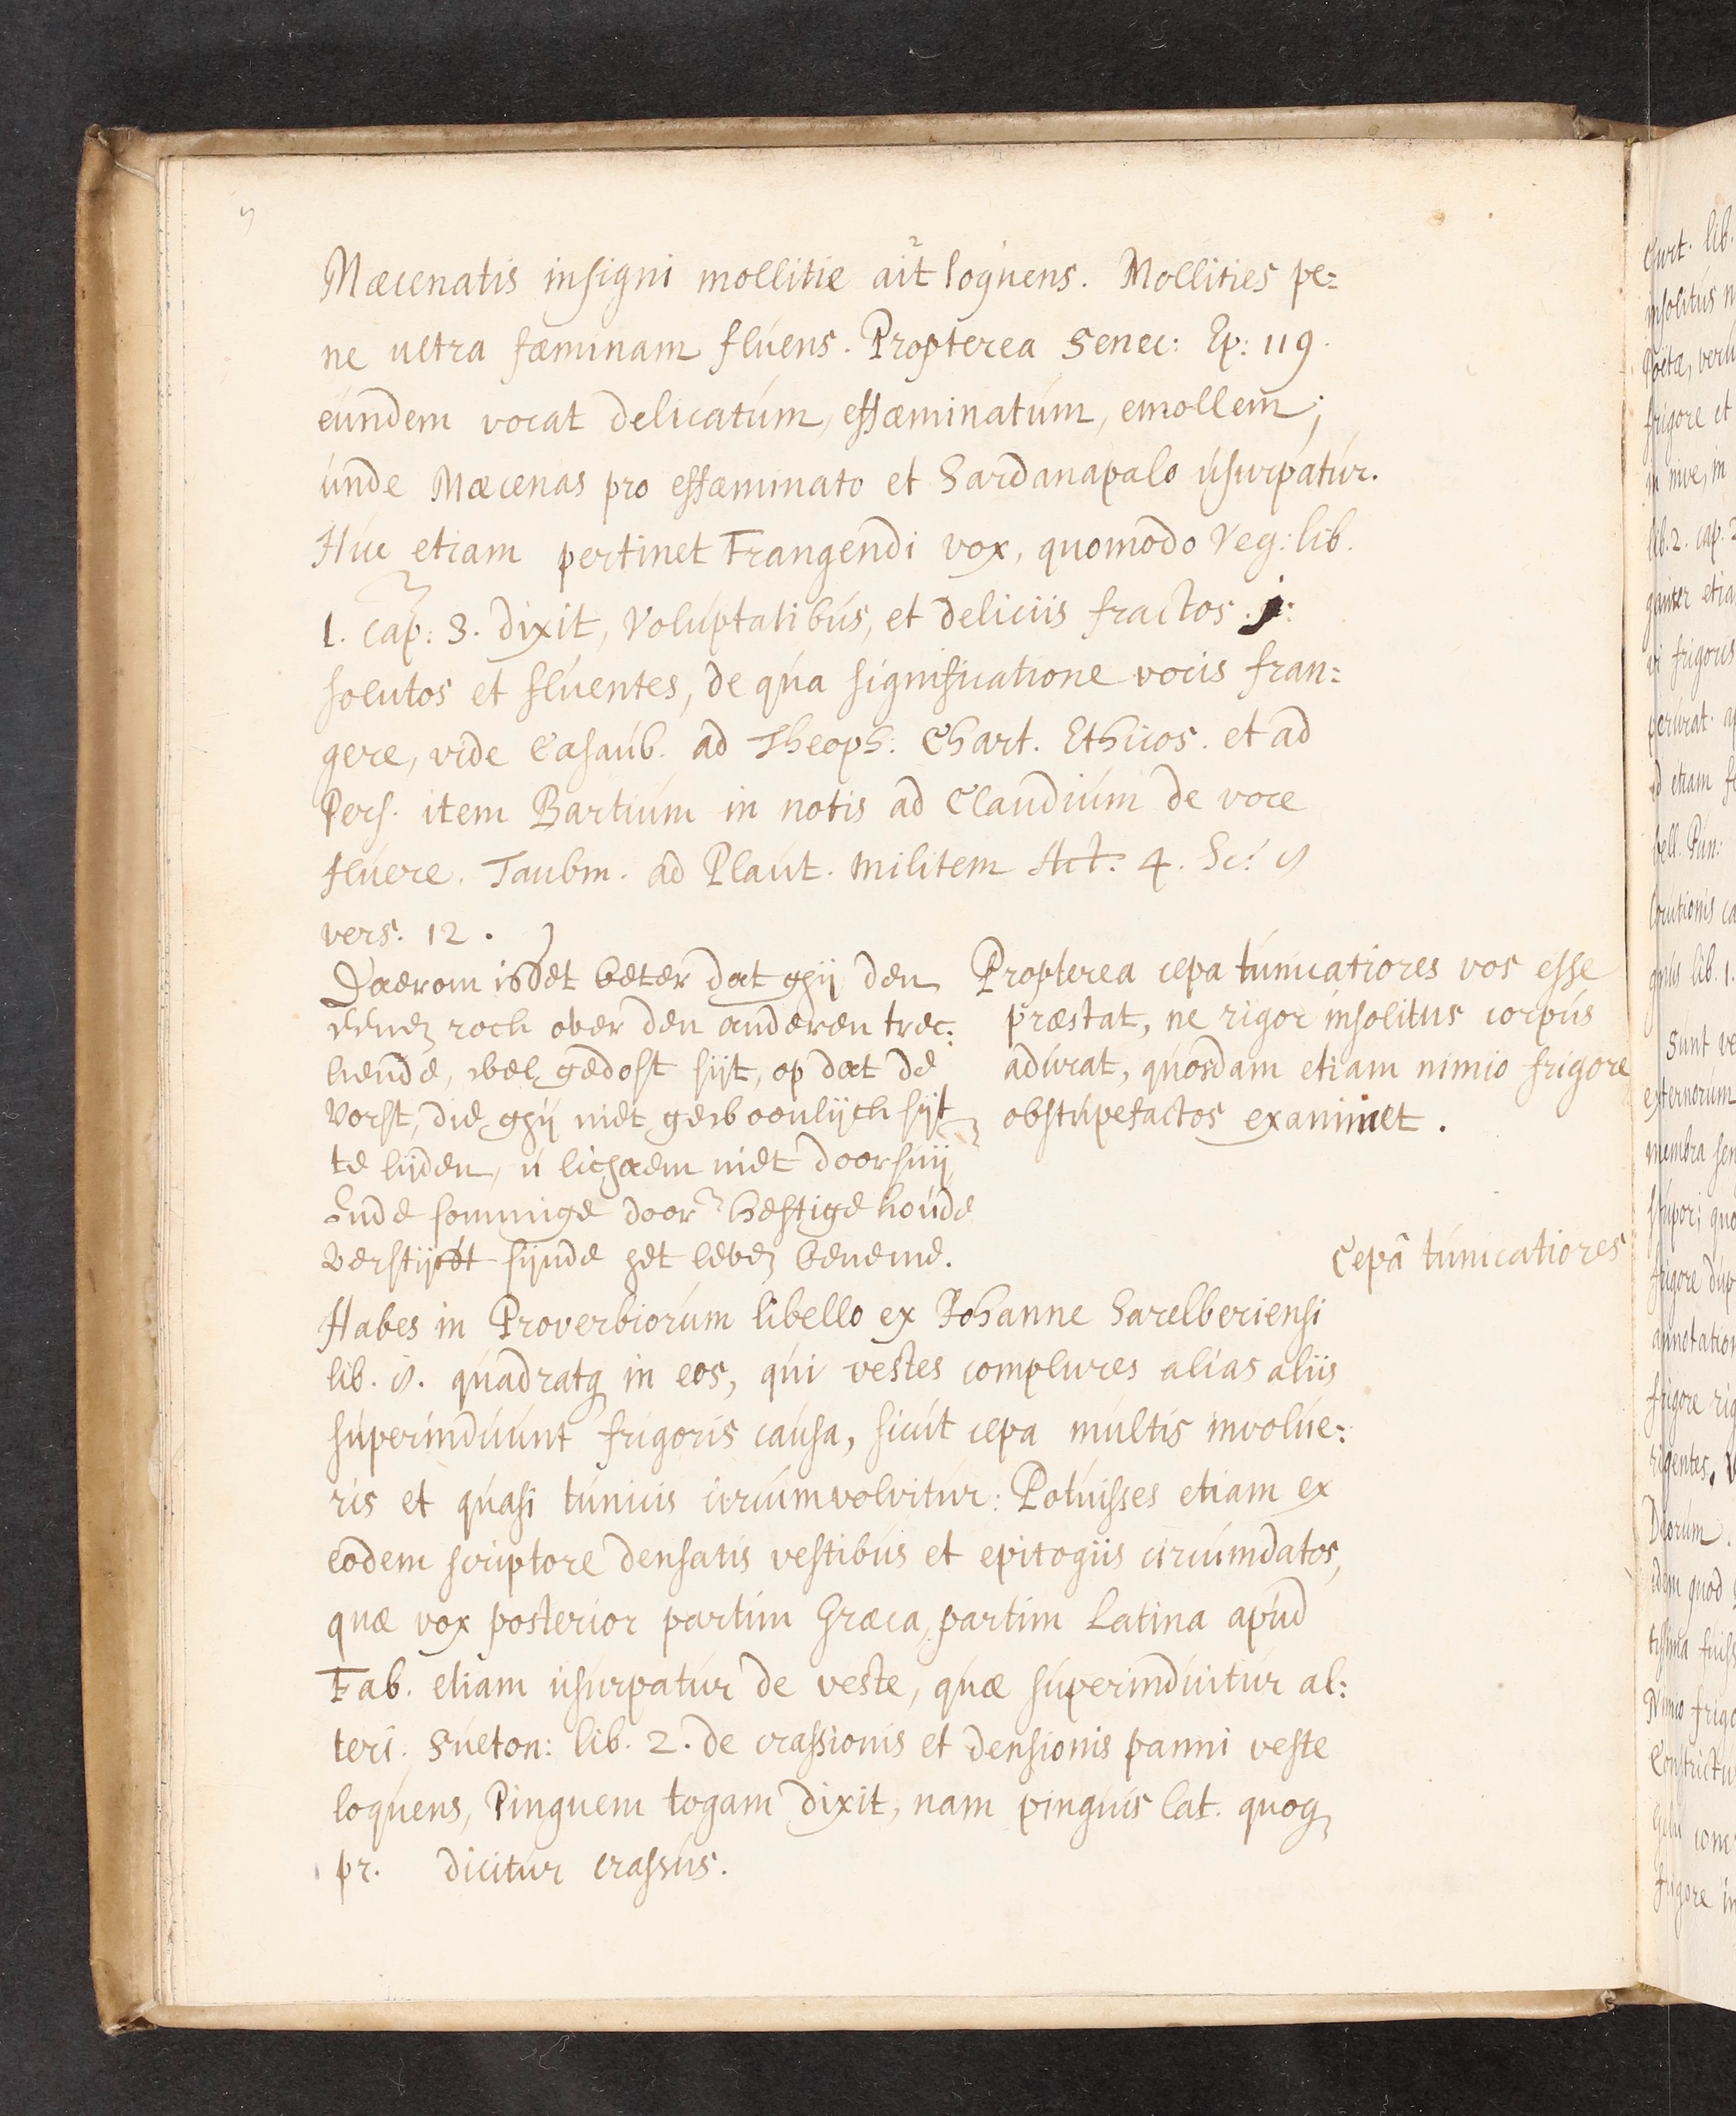 Mæcenatis insigni mollitie ait loquens. Mollities pe=
ne ultra fæminam fluens. Propterea Senec: Ep: 119.
eundem vocat delicatum, effæminatum, emollem;
unde Mæcenas pro effæminato et Sardanapalo usurpatur.
Huc etiam pertinet Frangendi vox, quomodo Veg: lib.
1. cap: 3. dixit, Voluptatibus, et deliciis fractos. j:
solutos et fluentes, de qua significatione vocis fran=
gere, vide Casaub. ad Theoph: Chart. Ethicos. et ad
Pers. item Bartium in notis ad Claudium de voce
fluere. Taubm. ad Plaut. militem Act: 4. Sc:
vers. 12.
Daerom is het beter dat ghij den
eenen rock over den anderen trec=
kende, wel gedost sijt, op dat de
vorst, die ghij niet gewoonlijck sijt
te lijden, u lichaem niet doorsnij
Ende sommige door hestige koude
verstijft sijnde het leven beneme.
Propterea cepa tunicatiores vos esse
præstat, ne rigor insolitus corpus
adurat, quosdam etiam nimio frigore
obstupefactos examinet.
Cepâ tunicatiores
Habes in Proverbiorum libello ex Johanne Sarelberiensi
lib. quadratq in eos, qui vestes complures alias aliis
superinduunt frigoris causa, sicut cepa multis involue=
ris et quasi tunicis circumvolvitur: Potuisses etiam ex
eodem scriptore densatis vestibus et epitogiis circumdatos,
quæ vox posterior partim Græca, partim Latina apud
Fab. etiam usurpatur de veste, quæ superinduitur al=
teri. Sueton: lib. 2. de crassionis et densionis panni veste
loquens, Pinguem togam dixit, nam pinguis lat. quoq
pr. dicitur crassus.